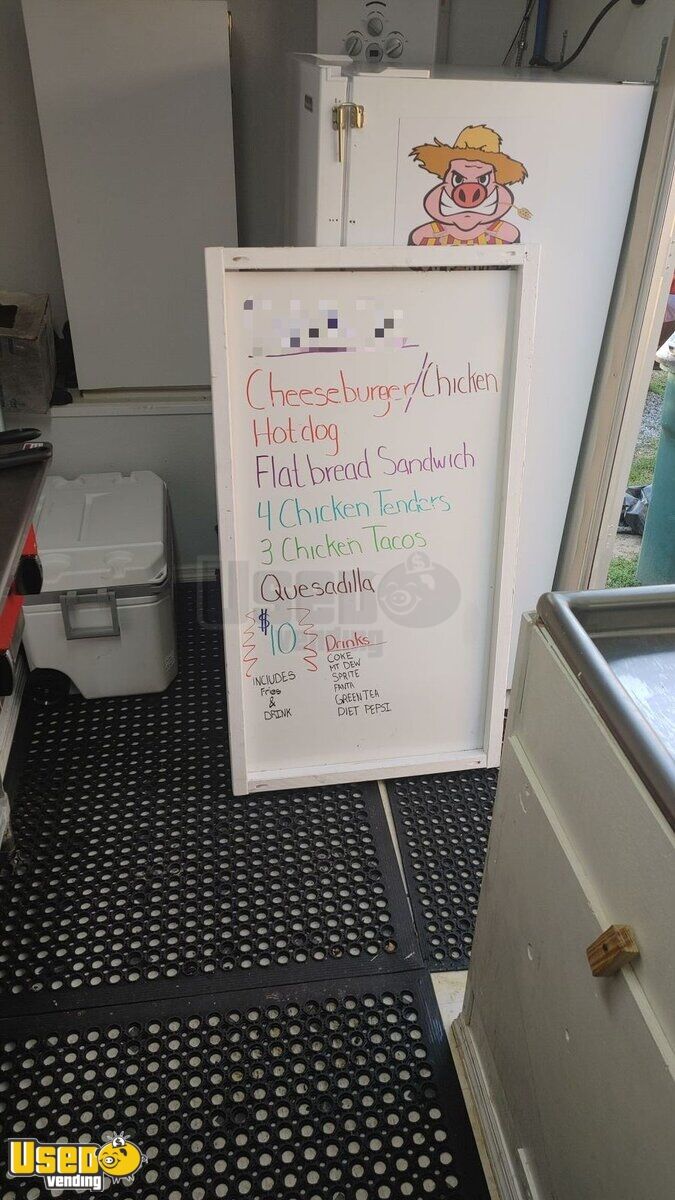 Cheeseburger/Chicken
Hotdog
Flatbread Sandwich
4 Chicken Tenders
3 Chicken Tacos
Quesadilla
$10
INCLUDES
Fries
&
DRINK
Drinks
COKE
MT DEW
SPRITE
FANTA
GREEN TEA
DIET PEPSI
USED
vending
USED
vending